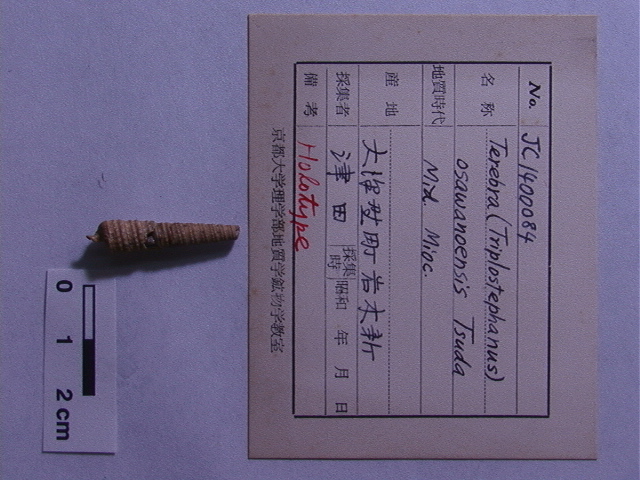 No. JC1400084
名称 Terebra (Triplostephanus)
osawanoensis Tsuda
地質時代 Mid. Mioc.
産地 大沢野町岩木新
採集者 津田 採集時 昭和 年 月 日
備考 Holotype
京都大学理学部地質学鉱物学教室
0 1 2 cm